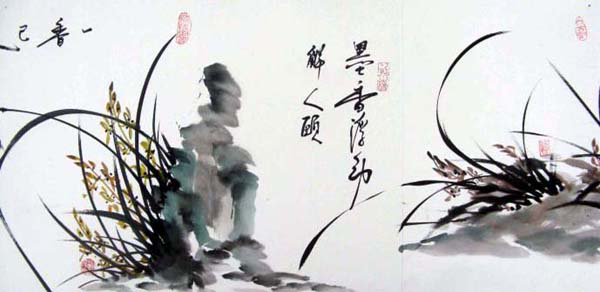 墨香浮动
解人颐
一香已